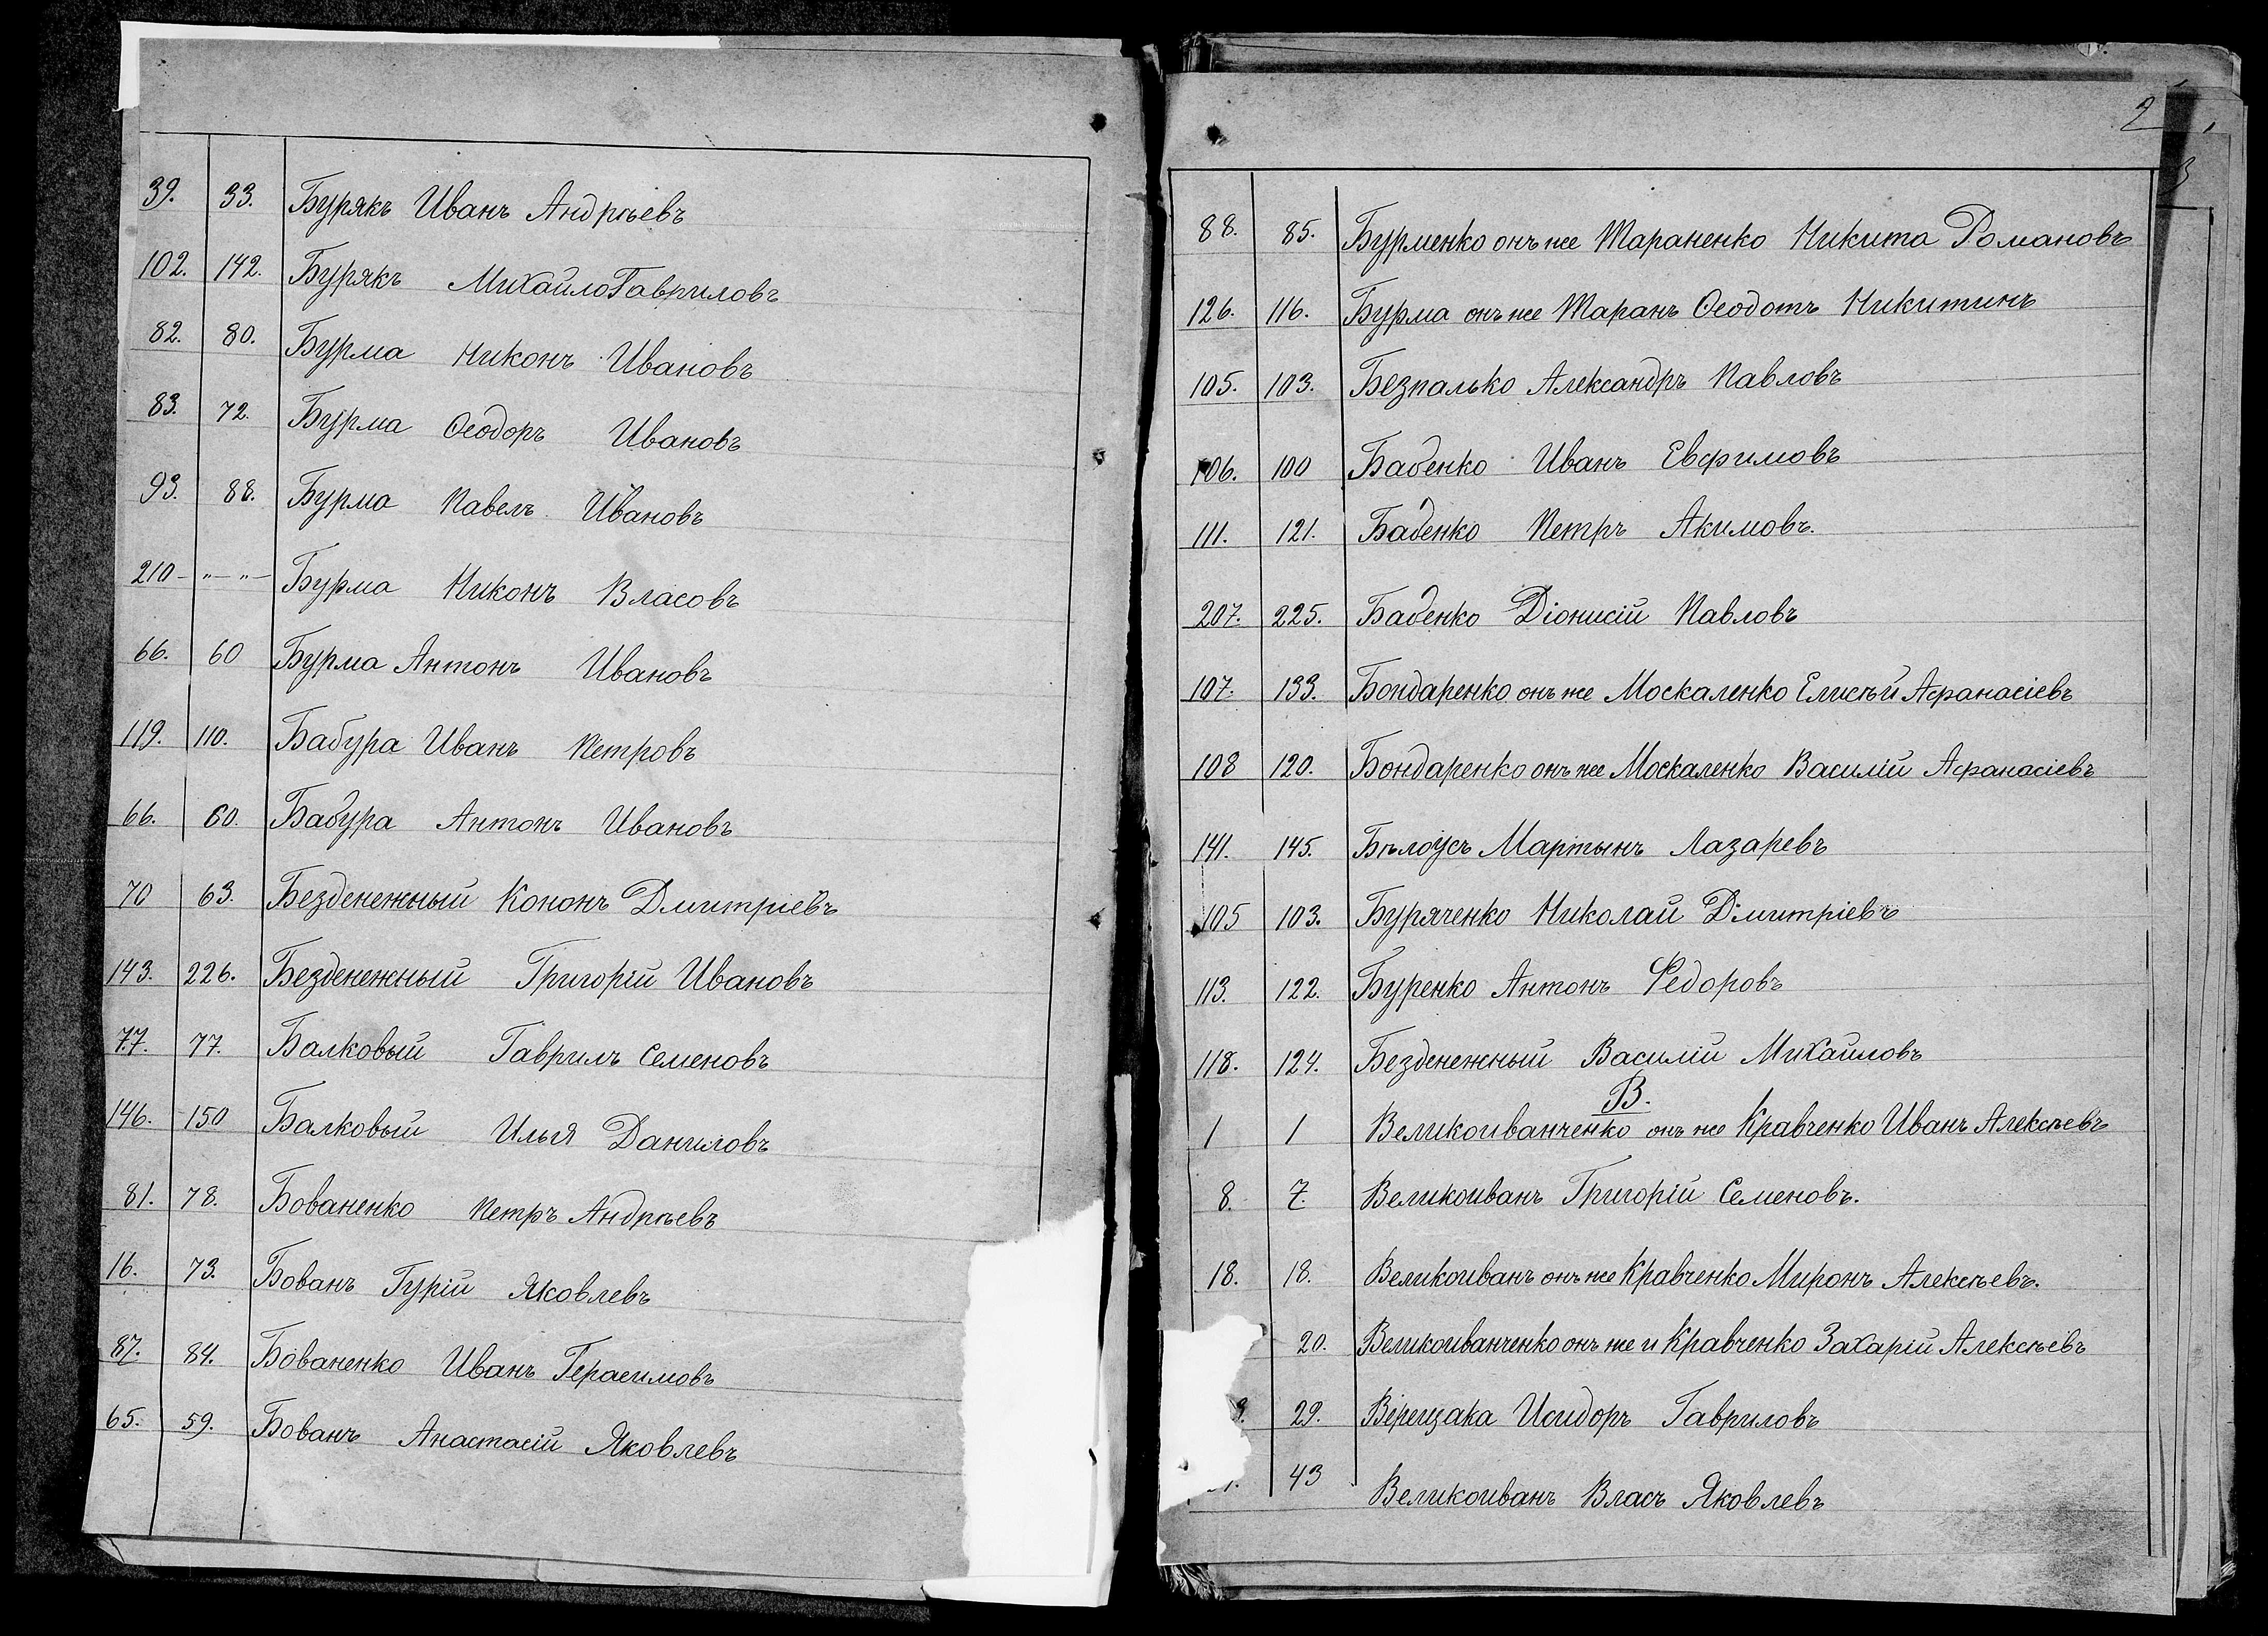 39. 33. Бурякъ Иванъ Андрѣевъ
102. 142. Бурякъ Михайло Гавриловъ
82. 80. Бурма Никонъ Ивановъ
83. 72. Бурма Ѳеодоръ Ивановъ
93. 88. Бурма Павелъ Ивановъ
210 - „ - „ - Бурма Никонъ Власовъ
66. 60 Бурма Антонъ Ивановъ
119. 110. Бабура Иванъ Петровъ
66. 60. Бабура Антонъ Ивановъ
70 63. Безденежный Кононъ Дмитріевъ
143. 226. Безденежный Григорій Ивановъ
77. 77. Балковый Гаврилъ Семеновъ
146. 150 Балковый Илья Даниловъ
81. 78. Бованенко Петръ Андрѣевъ
16. 73. Бованъ Гурій Яковлевъ
87. 84. Бованенко Иванъ Герасимовъ
65. 59. Бованъ Анастасій Яковлевъ
2
3
88. 85. Бурменко онъ же Тараненко Никита Романовъ
126. 116. Бурма онъ же Таранъ Ѳеодотъ Никитинъ
105. 103. Безпалько Александръ Павловъ
106. 100 Бабенко Иванъ Евфимовъ
111. 121. Бабенко Петръ Акимовъ.
207. 225. Бабенко Діонисій Павловъ
107. 133. Бондаренко онъ же Москаленко Елисѣй Афанасіевъ
108 120. Бондаренко онъ же Москаленко Василій Афанасіевъ
141. 145. Бѣлоусъ Мартынъ Лазаревъ
105 103. Буряченко Николай Дмитріевъ
113. 122. Буренко Антонъ Федоровъ
118. 124. Безденежный Василій Михайловъ
В.
1 1 Великоиванченко онъ же Кравченко Иванъ Алексѣевъ
8. 7. Великоиванъ Григорій Семеновъ.
18. 18. Великоиванъ онъ же Кравченко Миронъ Алексѣевъ.
20. Великоиванченко онъ же и Кравченко Захарій Алексѣевъ
29. Верещака Исидоръ Гавриловъ
43 Великоиванъ Власъ Яковлевъ